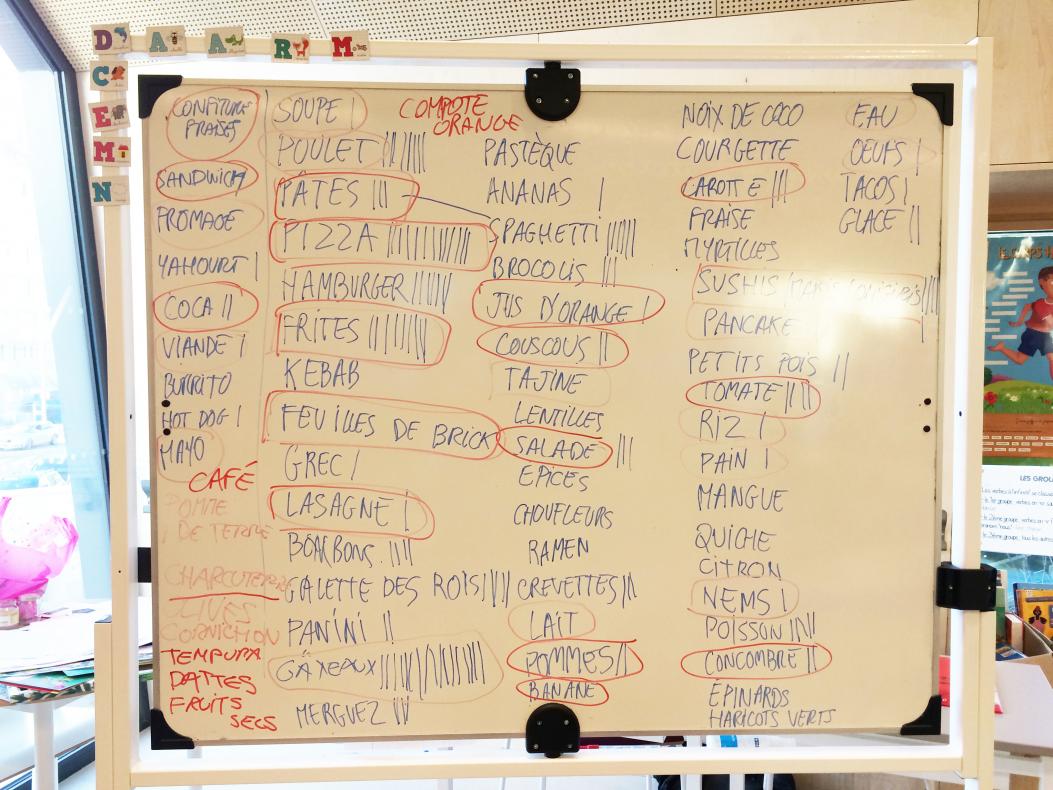 D A A R M
C
E
M
N
CONFITURE
FRAISES
SANDWICH
FROMAGE
YAHOURT |
COCA ||
VIANDE |
BURRITO
HOT DOG |
MAYO
CAFÉ
POMME
DE TERRE
CHARCUTERIE
OLIVES
CORNICHON
TEMPURA
DATTES
FRUITS
SECS
SOUPE |
POULET ||||||||
PÂTES |||
PIZZA ||||||||||||
HAMBURGER ||||||
FRITES ||||||||
KEBAB
FEUILLES DE BRICK
GREC |
LASAGNE |
BONBONS ||||
GALETTE DES ROIS ||||
PANINI ||
GÂTEAUX
MERGUEZ |||
COMPOTE
ORANGE
PASTÈQUE
ANANAS |
SPAGHETTI ||||||
BROCOLIS |||
JUS D'ORANGE |
COUSCOUS ||
TAJINE
LENTILLES
SALADE |||
EPICES
CHOUFLEURS
RAMEN
CREVETTES ||
LAIT
POMMES ||
BANANE
NOIX DE COCO
COURGETTE
CAROTTE |||
FRAISE
MYRTILLES
SUSHIS
PANCAKE
PETITS POIS ||
TOMATE ||||
RIZ |
PAIN |
MANGUE
QUICHE
CITRON
NEMS |
POISSON ||||
CONCOMBRE ||
ÉPINARDS
HARICOTS VERTS
EAU
OEUFS |
TACOS |
GLACE ||
LE CORPS
LES GROU